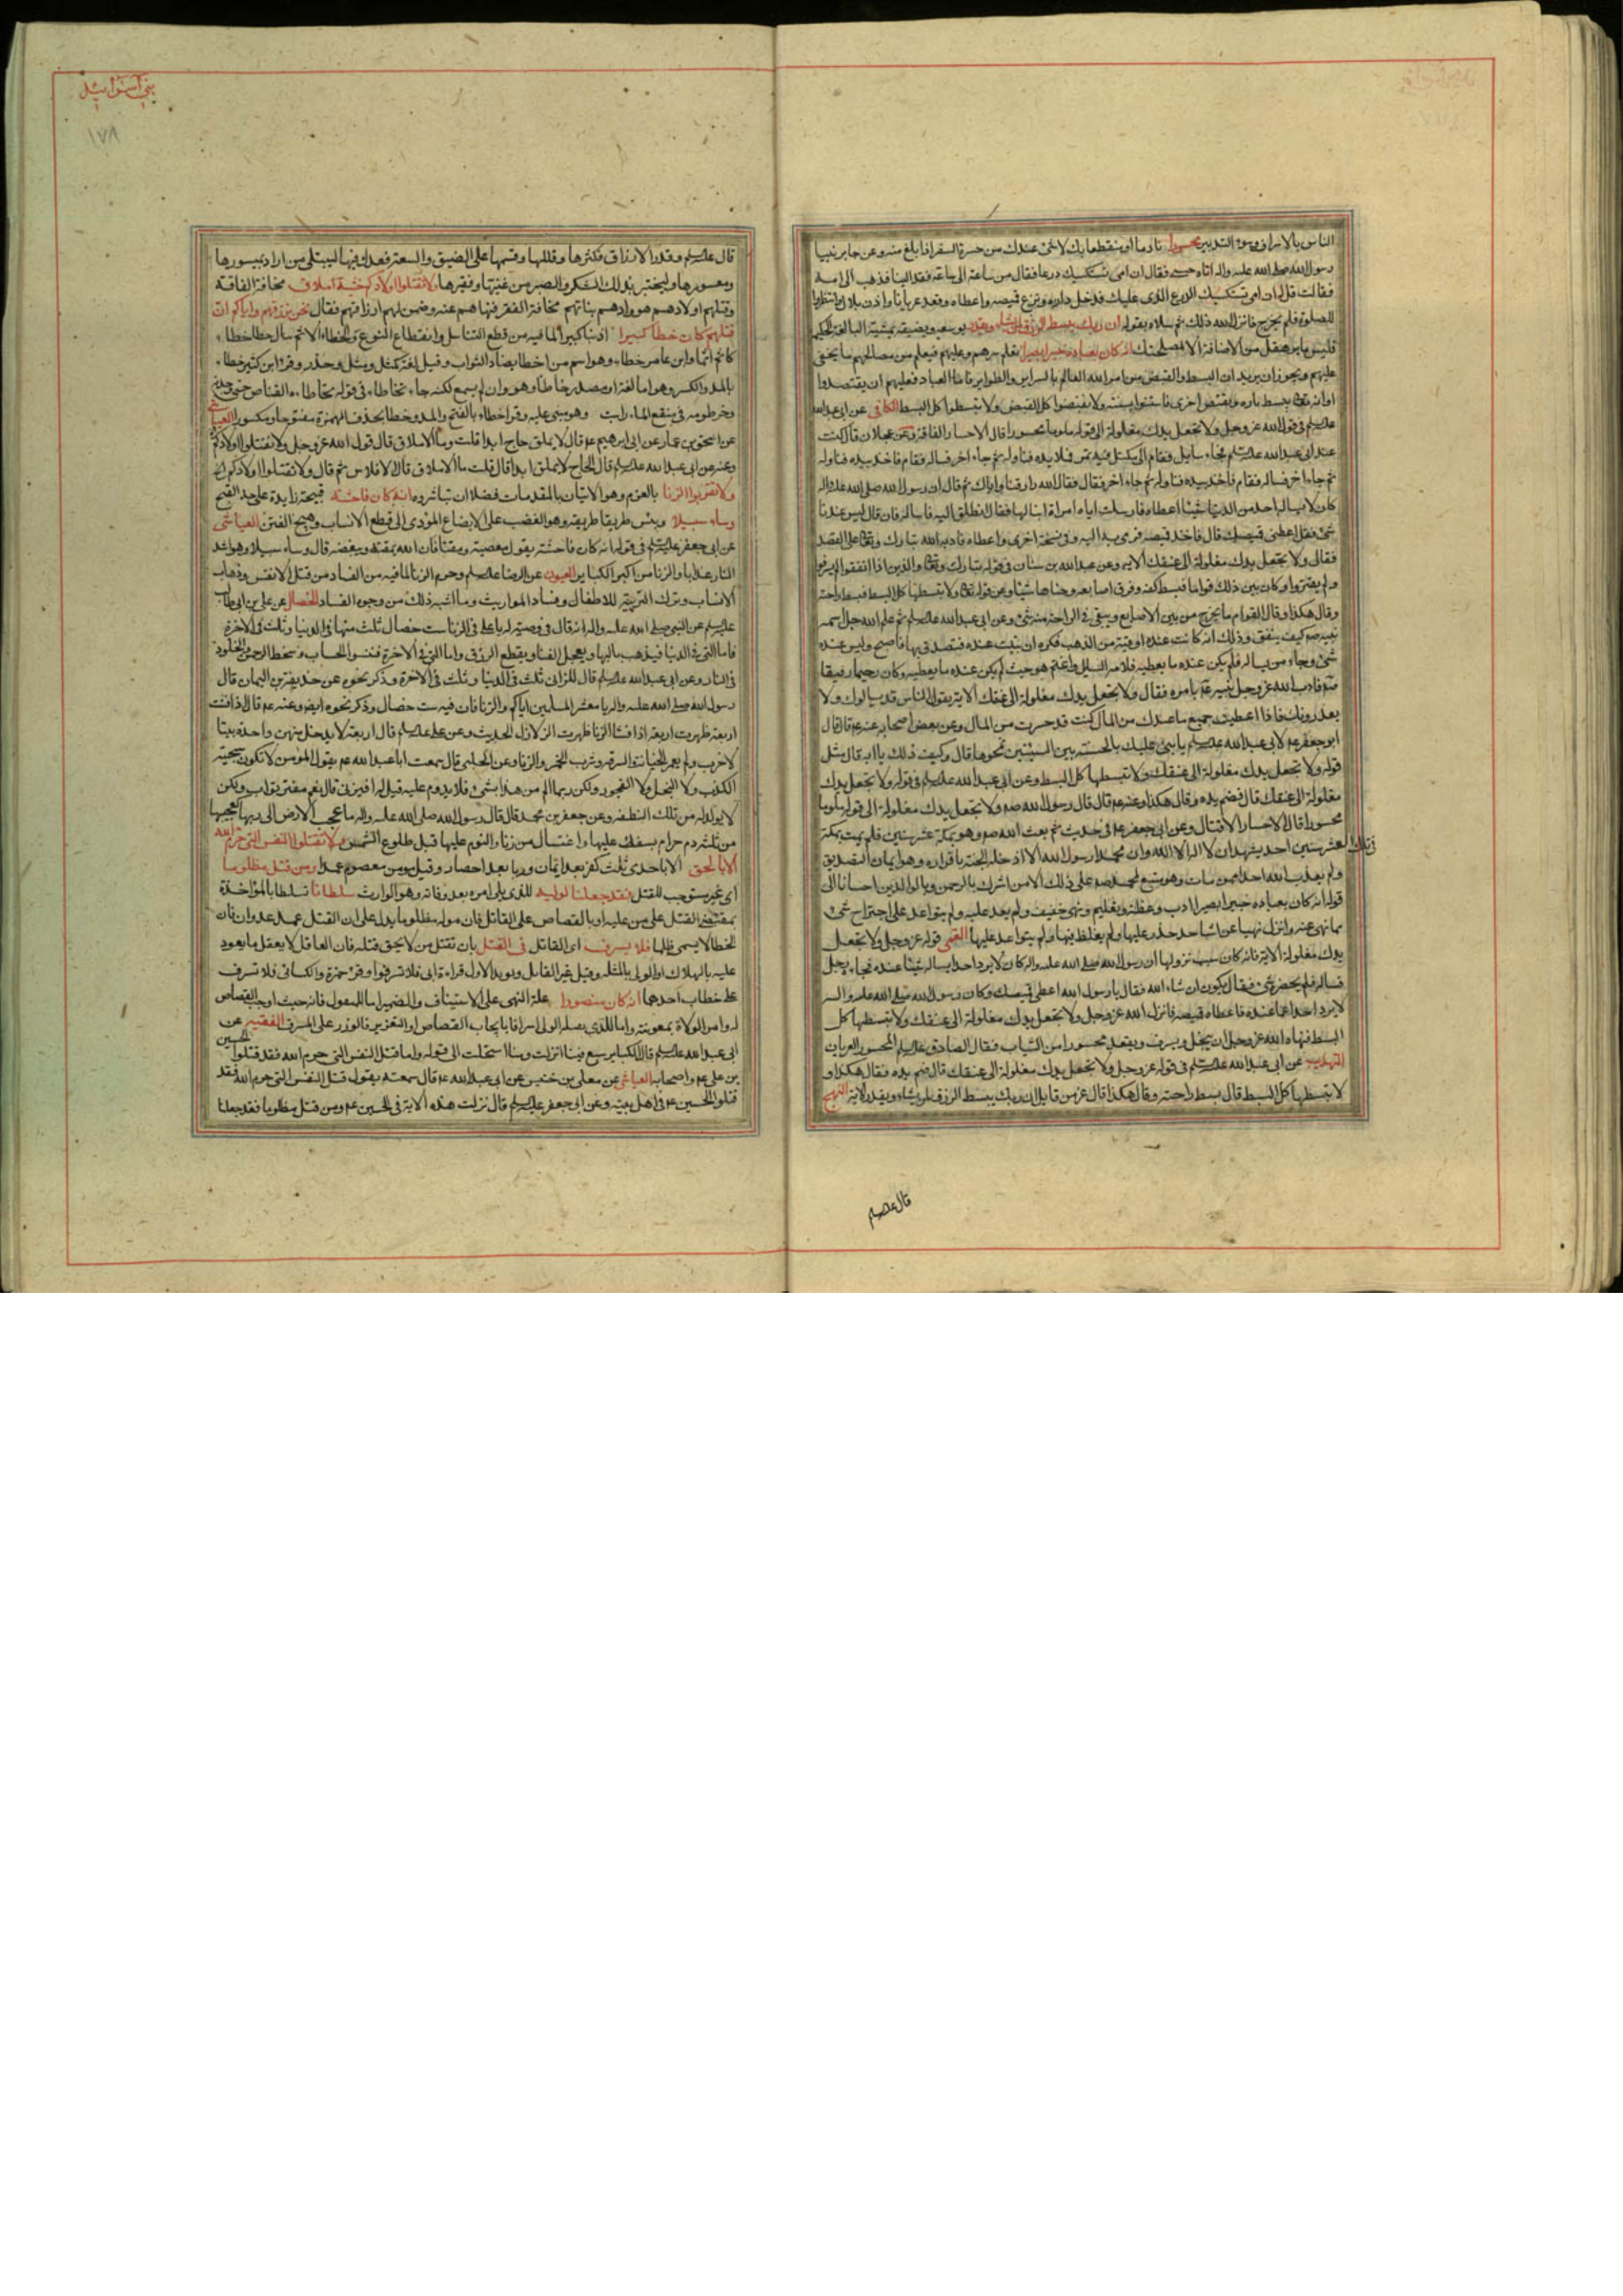 الناس بالاسراف وسوء التدبير محسورا نادما او منقطعا بك لا شئ عندك من حسرة السفر اذا بلغ منه وعن جابر بينا
رسول الله صلى الله عليه واله اتاه صبى فقال ان امى تستكسيك درعا فقال من ساعة الى ساعة فعد الينا فذهب الى امه
فقالت قل له ان امى تستكسيك الدرع الذى عليك فدخل داره ونزع قميصه واعطاه وقعد عريانا واذن بلال وانتظروا
للصلوة فلم يخرج فانزل الله ذلك ثم سلاه بقوله ان ربك يبسط الرزق لمن يشاء ويقدر يوسعه ويضيقه بمشيته البالغة
فليس ما يرهقك من الاضاقة الا لمصلحتك انه كان بعباده خبيرا بصيرا يعلم سرهم وعلنهم فيعلم من مصالحهم ما يخفى
عليهم ويجوز ان يريد ان البسط والقبض من امر الله العالم بالسراير والظواهر فاما العباد فعليهم ان يقتصدوا
او انه تعالى يبسط تارة ويقبض اخرى فاستنوا بسنته ولا تقبضوا كل القبض ولا تبسطوا كل البسط الكافى عن ابى عبد الله
عليه السلام فى قول الله عز وجل ولا تجعل يدك مغلولة الى قوله ملوما محسورا قال الاحسار الفاقة وعن عجلان قال كنت
عند ابى عبد الله عليه السلام فجاء سايل فقام الى مكتل فيه تمر فملا يده فناوله ثم جاء اخر فساله فقام فاخذ بيده فناوله
ثم جاء اخر فساله فقام فاخذ بيده فناوله ثم جاء اخر فقال فقال الله رازقنا واياك ثم قال ان رسول الله صلى الله عليه واله
كان لا يساله احد من الدنيا شيئا الا اعطاه فارسلت اليه امراة ابنا لها فقالت انطلق اليه فاساله فان قال ليس عندنا
شئ فقل اعطنى قميصك قال فاخذ قميصه فرمى به اليه وفى نسخة اخرى واعطاه فادبه الله تبارك وتعالى على القصد
فقال ولا تجعل يدك مغلولة الى عنقك الاية وعن عبد الله بن سنان فى قوله تبارك وتعالى والذين اذا انفقوا لم يسرفوا
ولم يقتروا وكان بين ذلك قواما فبسط كفه وفرق اصابعه وحناها شيئا وعن قوله تعالى ولا تبسطها كل البسط فبسط راحته
وقال هكذا وقال القوام ما يخرج من بين الاصابع ويبقى فى الراحة منه شئ وعن ابى عبد الله عليه السلام ثم علم الله جل اسمه
نبيه صم كيف ينفق وذلك انه كانت عنده اوقية من الذهب فكره ان تبيت عنده فتصدق بها فاصبح وليس عنده
شئ وجاءه من يساله فلم يكن عنده ما يعطيه فلامه السايل واغتم هو حيث لم يكن عنده ما يعطيه وكان رحيما رفيقا
صم فادب الله عز وجل نبيه عم بامره فقال ولا تجعل يدك مغلولة الى عنقك الاية يقول ان الناس قد يسالونك ولا
يعذرونك فاذا اعطيت جميع ما عندك من المال كنت قد حسرت من المال وعن بعض اصحابه عنه عم قال قال
ابو جعفر عم لابى عبد الله عليه السلام يا بنى عليك بالحسنة بين السيئتين تمحوها قال وكيف ذلك يا ابه قال مثل
قوله ولا تجعل يدك مغلولة الى عنقك ولا تبسطها كل البسط وعن ابى عبد الله عليه السلام فى قوله ولا تجعل يدك
مغلولة الى عنقك قال فضم يده وقال هكذا وعنه عم قال قال رسول الله صم ولا تجعل يدك مغلولة الى قوله ملوما
محسورا قال الاحسار الاقتار وعن ابى جعفر عم فى حديث ثم بعث الله صم وهو بمكة عشر سنين فلم يمت بمكة
فى تلك العشر سنين احد يشهد ان لا اله الا الله وان محمدا رسول الله الا ادخله الجنة باقراره وهو ايمان التصديق
ولم يعذب الله احدا ممن مات وهو متبع لمحمد صم على ذلك الا من اشرك بالرحمن وبالوالدين احسانا الى
قوله انه كان بعباده خبيرا بصيرا ادب وعظة وتعليم ونهى خفيف ولم يعد عليه ولم يتواعد على اجتراح شئ
مما نهى عنه وانزل نهيا عن اشياء حذر عليها ولم يغلظ فيها ولم يتواعد عليها القمى قوله عز وجل ولا تجعل
يدك مغلولة الاية فانه كان سبب نزولها ان رسول الله صلى الله عليه واله كان لا يرد احدا يساله شيئا عنده فجاء رجل
فساله فلم يحضره شئ فقال يكون ان شاء الله فقال يا رسول الله اعطنى قميصك وكان رسول الله صلى الله عليه واله
لا يرد احدا عما عنده فاعطاه قميصه فانزل الله عز وجل ولا تجعل يدك مغلولة الى عنقك ولا تبسطها كل
البسط فنهاه الله عز وجل ان يبخل ويسرف ويقعد محسورا من الثياب فقال الصادق عليه السلام المحسور العريان
التهذيب عن ابى عبد الله عليه السلام فى قوله عز وجل ولا تجعل يدك مغلولة الى عنقك قال ضم يده فقال هكذا و
لا تبسطها كل البسط قال بسط راحته وقال هكذا قال عز من قايل ان ربك يبسط الرزق لمن يشاء ويقدر الاية النهج
قال عليه السلام
بنى اسرائيل
١٧٨
قال عليه السلام وقدر الارزاق فكثرها وقللها وقسمها على الضيق والسعة فعدل فيها ليبتلى من اراد بميسورها
ومعسورها وليختبر بذلك الشكر والصبر من غنيها وفقيرها ولا تقتلوا اولادكم خشية املاق مخافة الفاقة
وقتلهم اولادهم هو وادهم بناتهم مخافة الفقر فنهاهم عنه وضمن لهم ارزاقهم فقال نحن نرزقهم واياكم ان
قتلهم كان خطا كبيرا ذنبا كبيرا لما فيه من قطع التناسل وانقطاع النوع والخطاء الاثم يقال خطا خطاء
كاثم اثما وابن عامر خطاء وهو اسم من اخطا يضاد الثواب وقيل لغة كمثل ومثل وحذر وقرا ابن كثير خطاء
بالمد والكسر وهو اما لغة او مصدر خاطا وهو وان لم يسمع لكنه جاء تخاطا فى قوله تخاطاه القناص حتى وجدته
وخرطومه فى منقع الماء راسب وهو مبنى عليه وقرا خطاء بالفتح والمد وخطا بحذف الهمزة مفتوحا ومكسورا العياشى
عن اسحق بن عمار عن ابى ابرهيم عم قال لا يملق حاج ابدا قلت وما الاملاق قال قول الله عز وجل ولا تقتلوا اولادكم
وعنه عن ابى عبد الله عليه السلام قال الحاج لا يملق ابدا قال قلت ما الاملاق قال الافلاس ثم قال ولا تقتلوا اولادكم الخ
ولا تقربوا الزنا بالعزم وهو الاتيان بالمقدمات فضلا ان تباشروه انه كان فاحشة قبيحة زايدة على حد القبح
وساء سبيلا وبئس طريقا طريقه وهو الغصب على الابضاع المؤدى الى قطع الانساب وهيج الفتن العياشى
عن ابى جعفر عليه السلام فى قوله انه كان فاحشة يقول معصية ومقتا فان الله يمقته ويبغضه قال وساء سبيلا وهو اشد
النار عذابا والزنا من اكبر الكباير العيون عن الرضا عليه السلام وحرم الزنا لما فيه من الفساد من قتل الانفس وذهاب
الانساب وترك التربية للاطفال وفساد المواريث وما اشبه ذلك من وجوه الفساد الخصال عن على بن ابى طالب
عليه السلام عن النبى صلى الله عليه واله انه قال فى وصيته له يا على فى الزنا ست خصال ثلث منها فى الدنيا وثلث فى الاخرة
فاما التى فى الدنيا فيذهب بالبهاء ويعجل الفناء ويقطع الرزق واما التى فى الاخرة فسوء الحساب وسخط الرحمن والخلود
فى النار وعن ابى عبد الله عليه السلام قال للزانى ثلث فى الدنيا وثلث فى الاخرة وذكر نحوه عن حذيفة بن اليمان قال
رسول الله صلى الله عليه واله يا معشر المسلمين اياكم والزنا فان فيه ست خصال وذكر نحوه ايضا وعنه عم قال اذا فشت
اربعة ظهرت اربعة اذا فشا الزنا ظهرت الزلازل الحديث وعن على عليه السلام قال اربعة لا يدخل منهن واحدة بيتا
الا خرب ولم يعمر الخيانة والسرقة وشرب الخمر والزنا وعن الحلبى قال سمعت ابا عبد الله عم يقول المؤمن لا تكون سجيته
الكذب ولا البخل ولا الفجور ولكن ربما الم من هذا بشئ فلا يدوم عليه قيل له افيزنى قال نعم مفتن تواب ولكن
لا يولد له من تلك النطفة وعن جعفر بن محمد قال قال رسول الله صلى الله عليه واله ما عجت الارض الى ربها كعجيجها
من ثلثة دم حرام يسفك عليها او اغتسال من زنا او النوم عليها قبل طلوع الشمس ولا تقتلوا النفس التى حرم الله
الا بالحق الا باحدى ثلث كفر بعد ايمان وزنا بعد احصان وقتل مؤمن معصوم عمدا ومن قتل مظلوما
اى غير مستوجب للقتل فقد جعلنا لوليه للذى يلى امره بعد وفاته وهو الوارث سلطانا تسلطا بالمؤاخذة
بمقتضى القتل على من عليه او بالقصاص على القاتل فان موله مظلوما يدل على ان القتل عمد عدوان فان
الخطا لا يسمى ظلما فلا يسرف اى القاتل فى القتل بان يقتل من لا يحق قتله فان العاقل لا يفعل ما يعود
عليه بالهلاك او الولى بالمثلة وقيل غير القاتل ويؤيد الاول قراءة ابى فلا تسرفوا وقرا حمزة والكسائى فلا تسرف
على خطاب احدهما انه كان منصورا علة النهى على الاستيناف والضمير اما للمقتول فانه حيث اوجب القصاص
له وامر الولاة بمعونته واما للذى يقتله الولى اسرافا بايجاب القصاص او التعزير فالوزر على المسرف الفقيه عن
ابى عبد الله عليه السلام قال الكباير سبع فينا انزلت ومنا استحلت الى قوله واما قتل النفس التى حرم الله فقد قتلوا الحسين
بن على عم واصحابه العياشى عن معلى بن خنيس عن ابى عبد الله عم قال سمعته يقول قتل النفس التى حرم الله فقد
قتلوا الحسين عم فى اهل بيته وعن ابى جعفر عليه السلام قال نزلت هذه الاية فى الحسين عم ومن قتل مظلوما فقد جعلنا